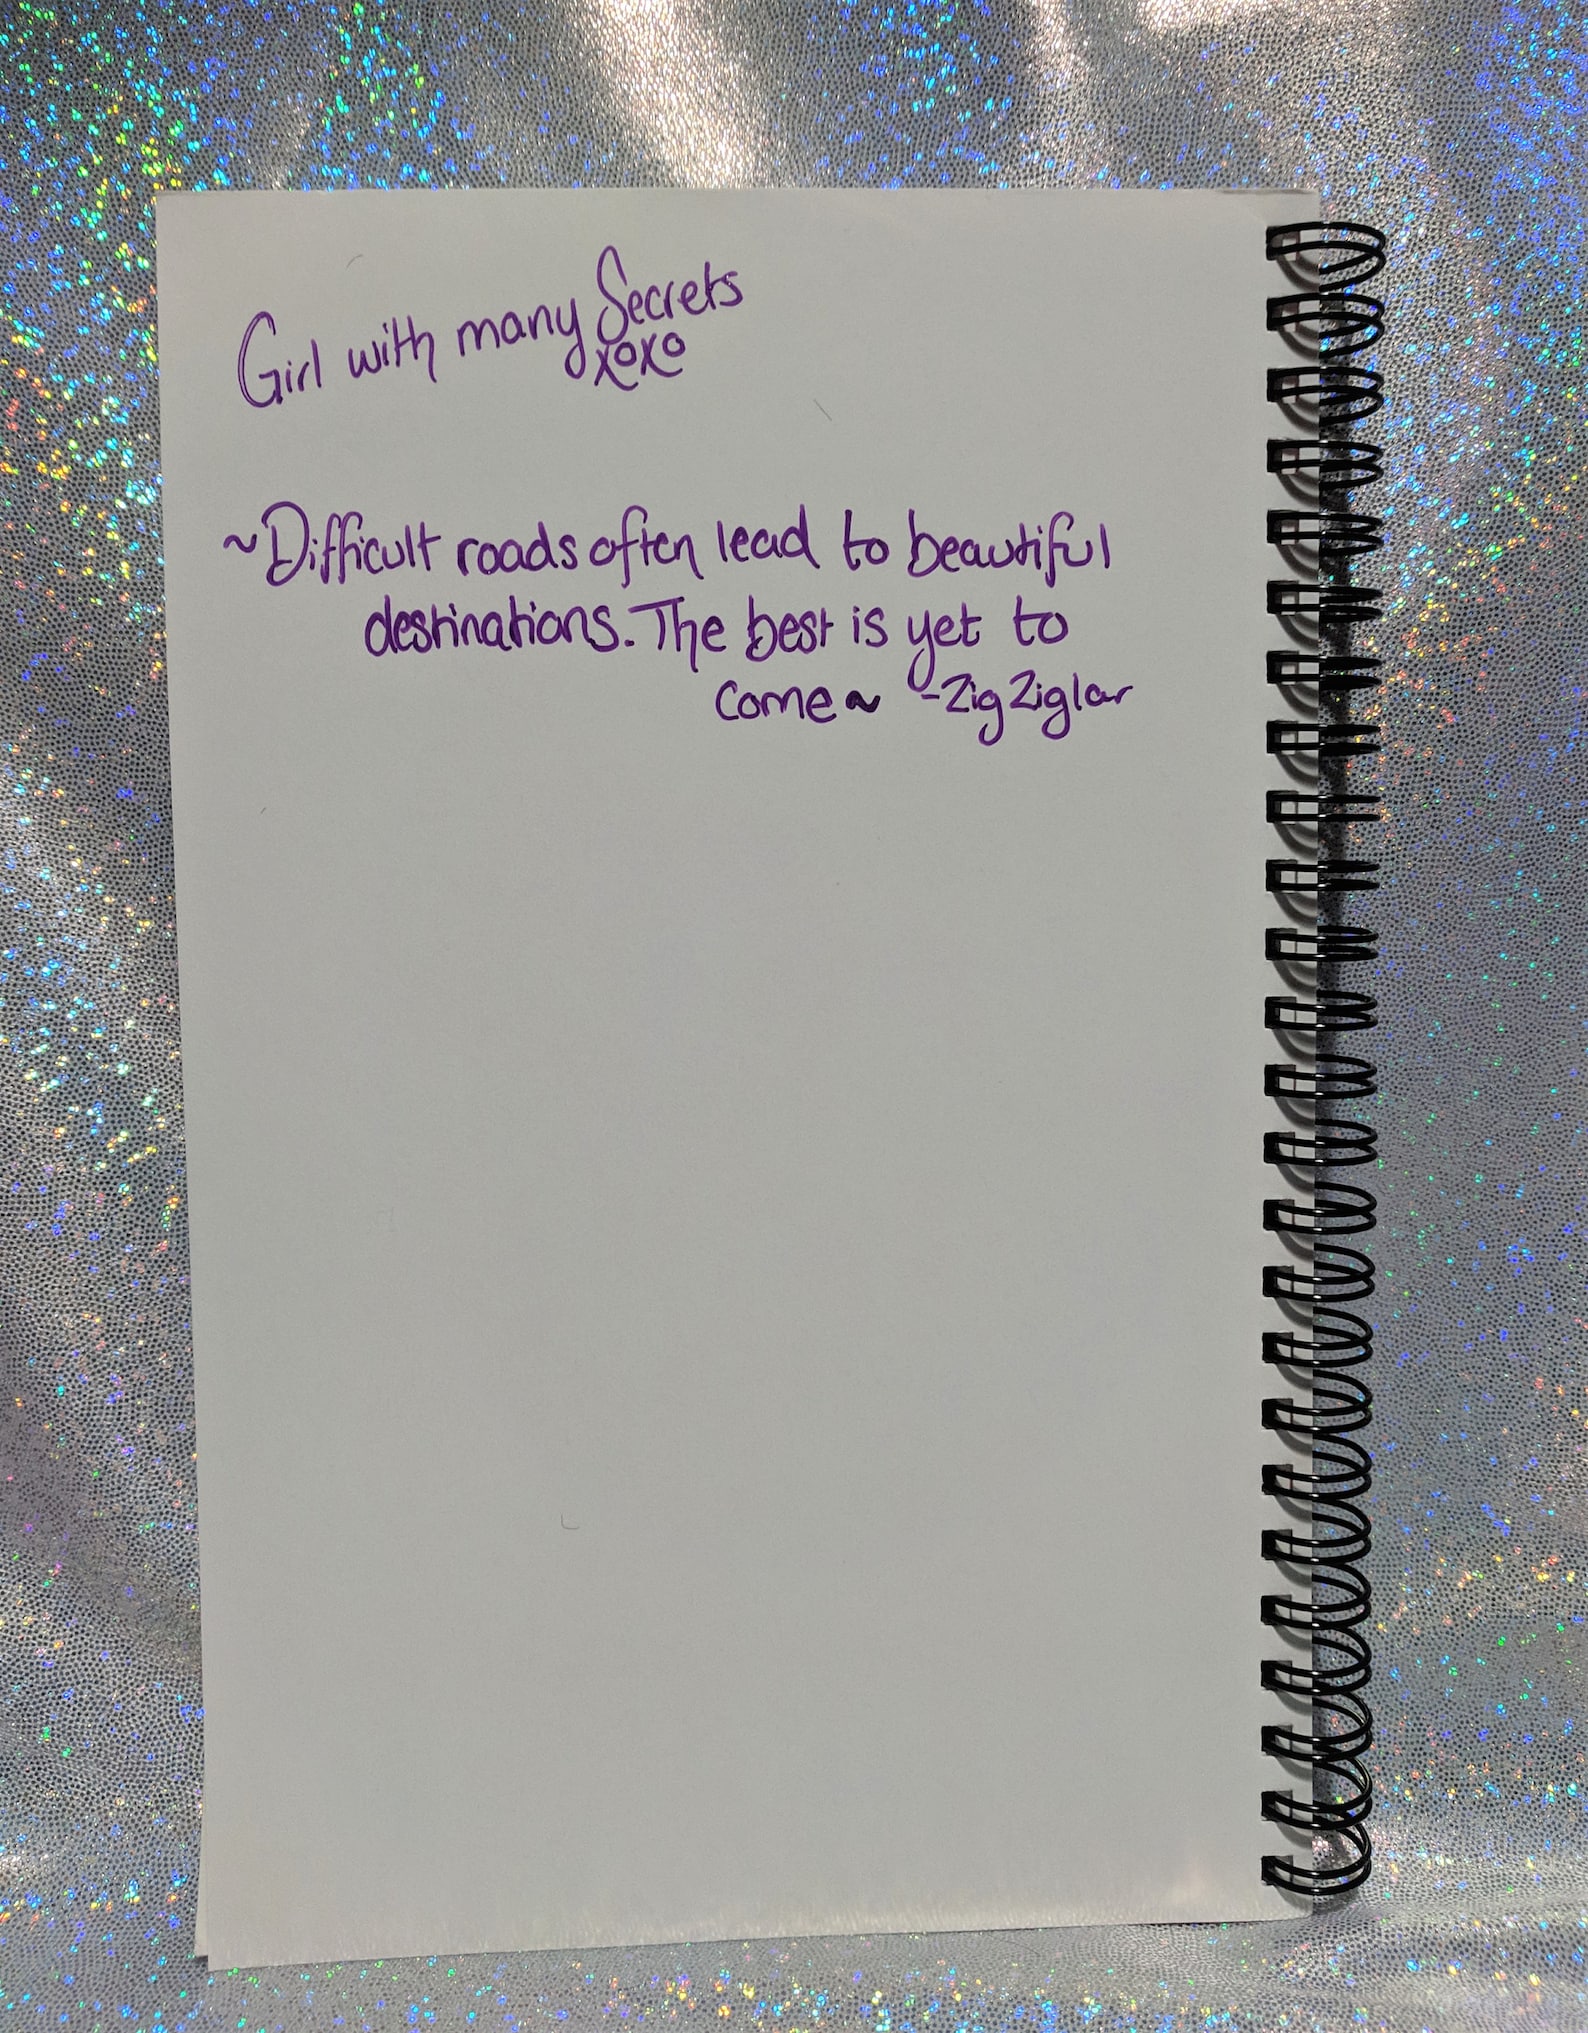 Girl with many Secrets
xoxo
~Difficult roads often lead to beautiful
destinations. The best is yet to
come~ -Zig Ziglar